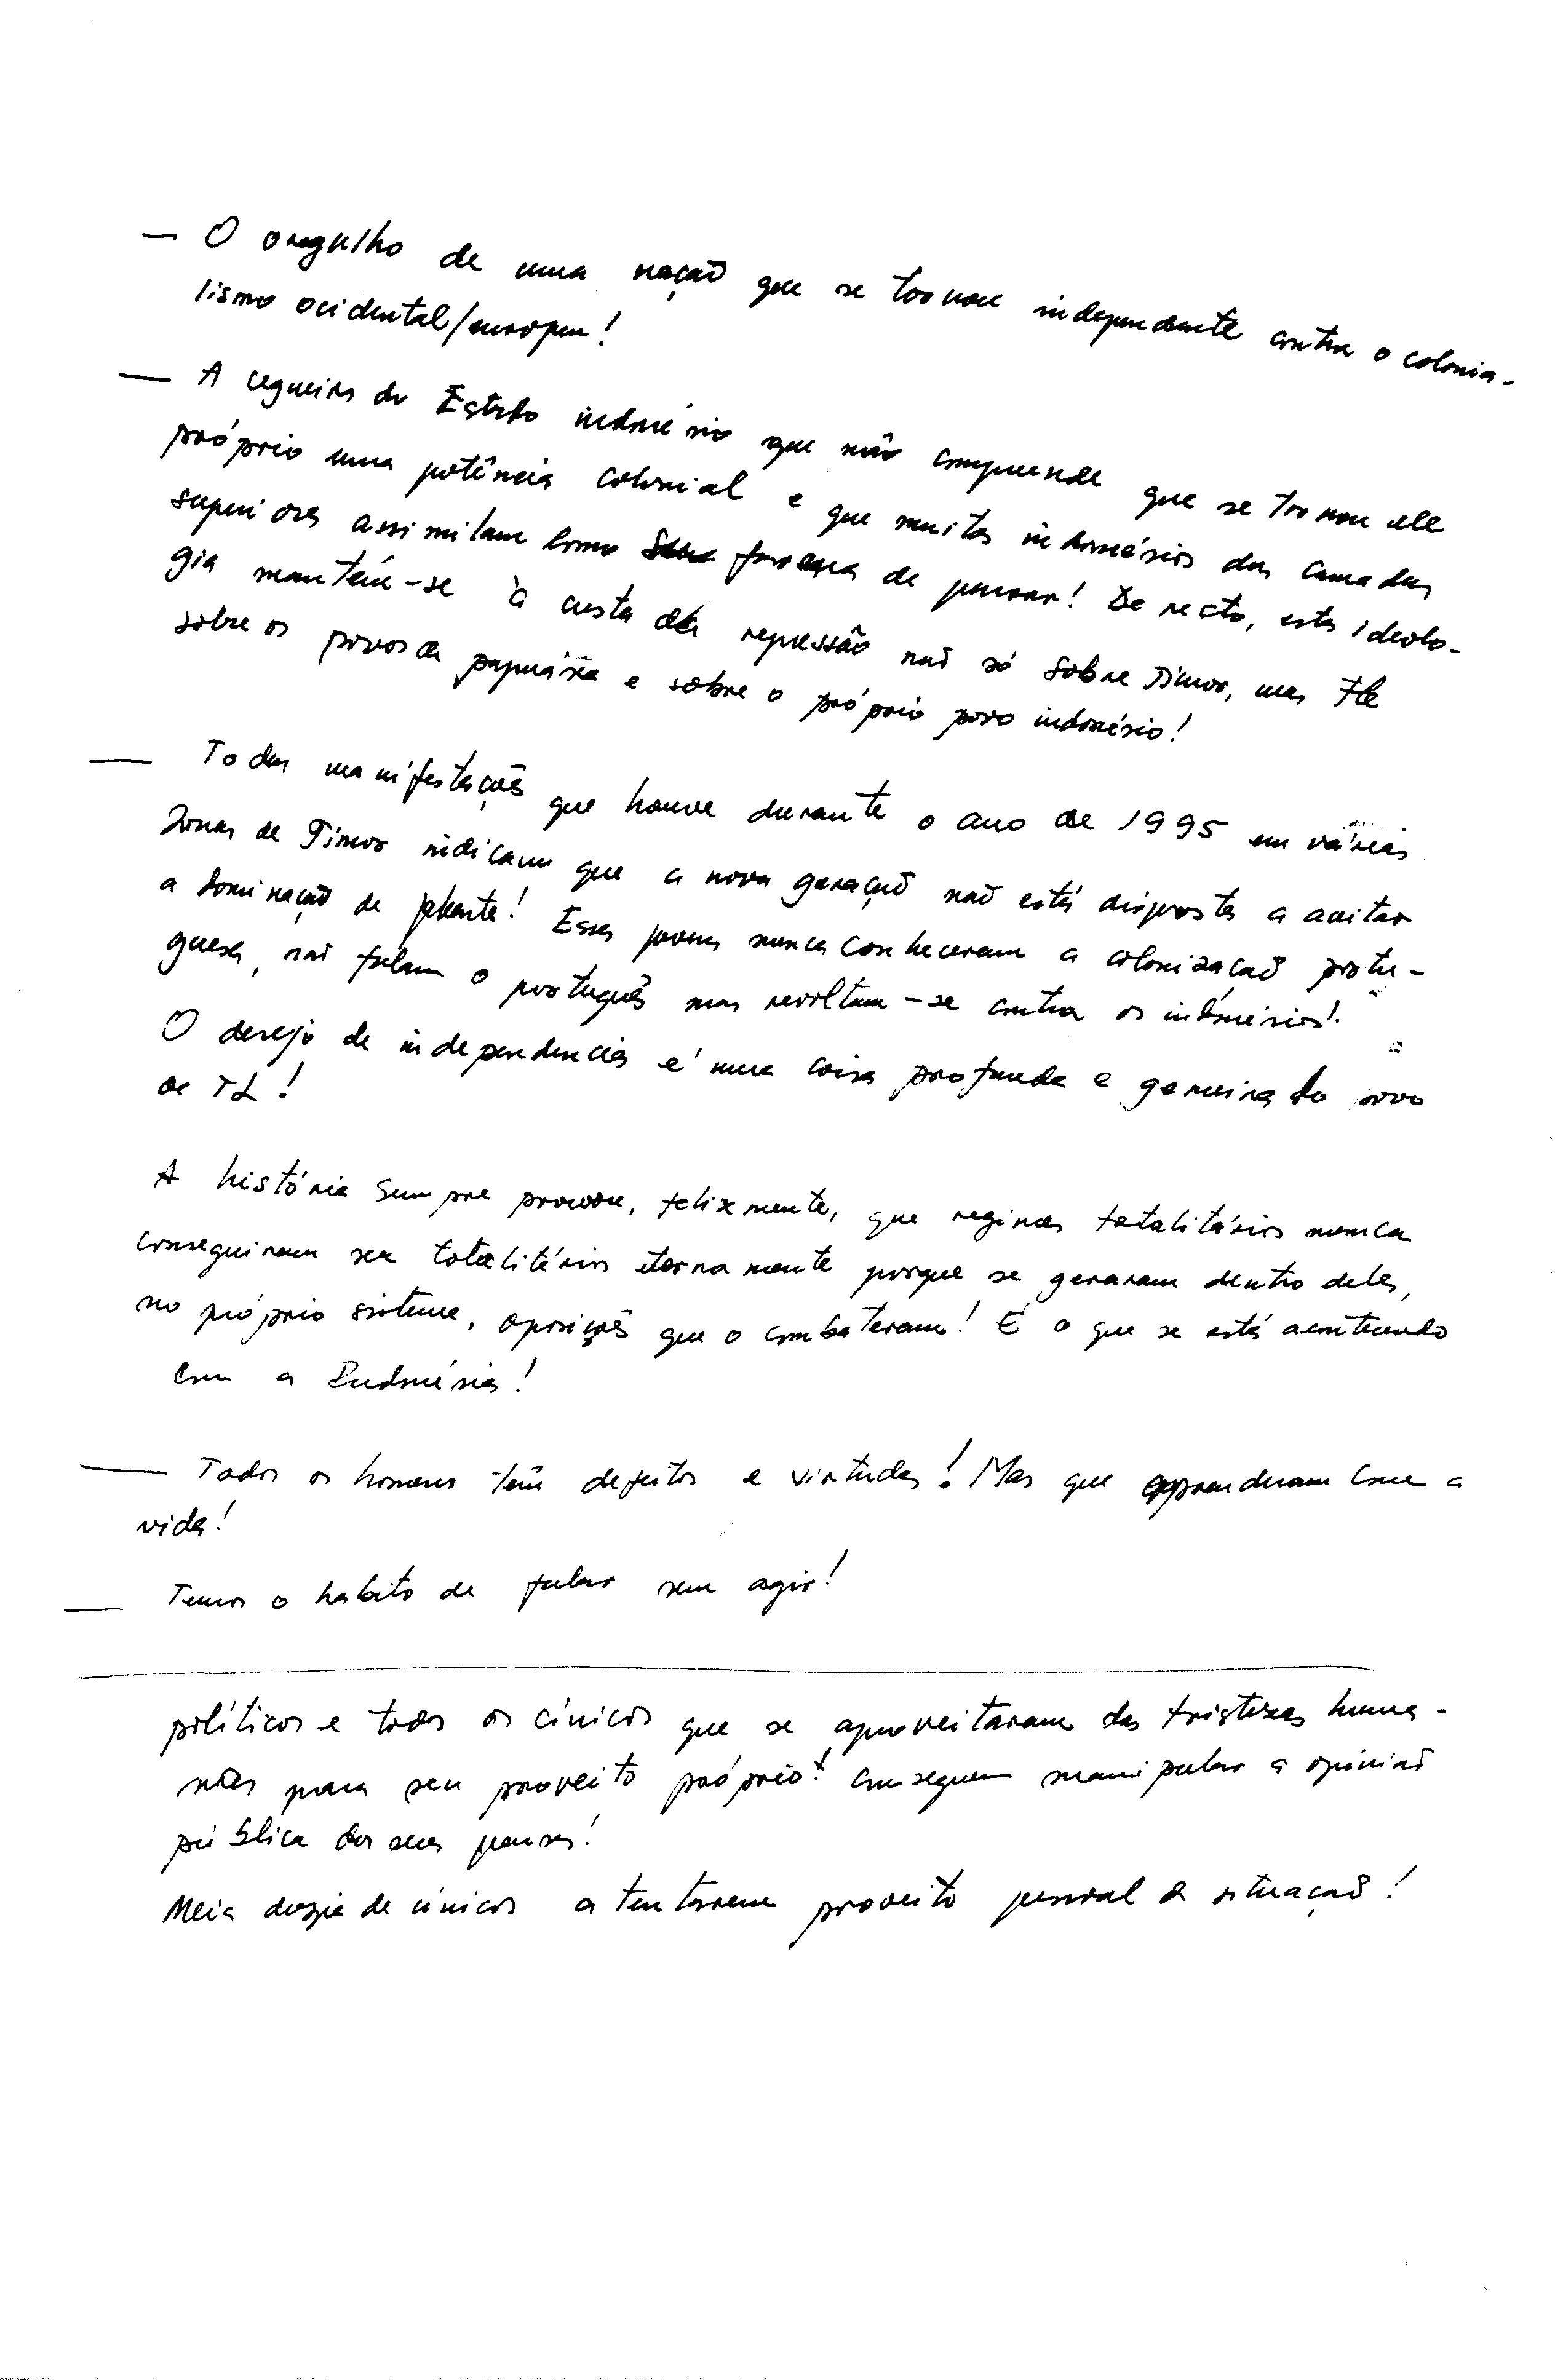 — O orgulho de uma nação que se tornou independente contra o colonia-
lismo ocidental/europeu!
— A cegueira do Estado indonésio que não compreende que se tornou ele
próprio uma potência colonial e que muitos indonésios das camadas
superiores assimilam como forma de pensar! De resto, esta ideolo-
gia mantém-se à custa da repressão não só sobre Timor, mas
sobre os povos da papuásia e sobre o próprio povo indonésio!
— Todas manifestações que houve durante o ano de 1995 em várias
zonas de Timor indicam que a nova geração não está disposta a aceitar
a dominação de jakarta! Esses jovens nunca conheceram a colonização portu-
guesa, não falam o português mas revoltam-se contra os indonésios!
O desejo de independencia é uma coisa profunda e genuina do povo
de TL!
A história sempre provou, felizmente, que regimes totalitários nunca
conseguiram ser totalitários eternamente porque se geraram dentro deles,
no próprio sistema, oposições que o combateram! É o que se está acontecendo
com a Indonésia!
— Todos os homens têm defeitos e virtudes! Mas que apprenderam com a
vida!
— Temos o habito de falar sem agir!
políticos e todos os cínicos que se aproveitaram das tristezas huma-
nas para seu proveito próprio! conseguem manipular a opinião
pública dos seus países!
Meia dúzia de cínicos a tentarem proveito pessoal da situação!